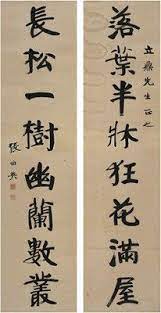 落葉半牀狂花滿屋
先生正之
長松一樹幽蘭數叢
張伯英